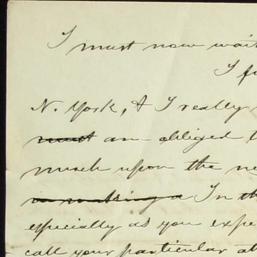 I must now wait
I f
N. York, & I really
must am obliged t
much upon the ne
In th
especially as you expe
call your particular at